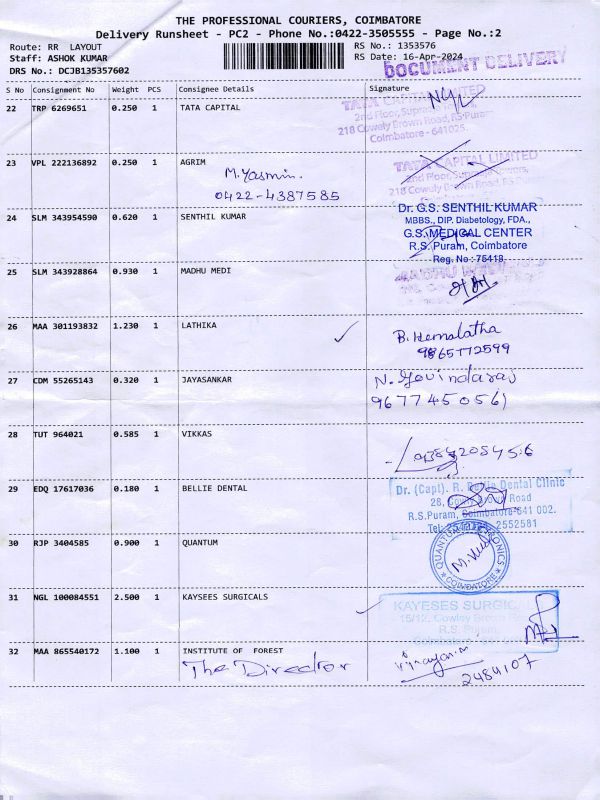 THE PROFESSIONAL COURIERS, COIMBATORE
Delivery Runsheet - PC2 - Phone No.:0422-3505555 - Page No.:2
Route: RR LAYOUT
RS No.: 1353576
Staff: ASHOK KUMAR
RS Date: 16-Apr-2024
DOCUMENT DELIVERY
DRS No.: DCJB135357602
S No Consignment No Weight PCS Consignee Details Signature
22 TRP 6269651 0.250 1 TATA CAPITAL
TATA CAPITAL LIMITED
2nd Floor,
218 Cowely Brown Road, RS Puram,
Coimbatore - 641025.
23 VPL 222136892 0.250 1 AGRIM
M. Yasmin.
0422-4387585
TATA CAPITAL LIMITED
2nd Floor,
218 Cowely Brown Road,
24 SLM 343954590 0.620 1 SENTHIL KUMAR
Dr. G.S. SENTHIL KUMAR
MBBS., DIP. Diabetology, FDA.,
G.S. MEDICAL CENTER
R.S. Puram, Coimbatore
Reg. No : 75418
25 SLM 343928864 0.930 1 MADHU MEDI
MADHU
26 MAA 301193832 1.230 1 LATHIKA
B. Hemalatha
9865772599
27 CDM 55265143 0.320 1 JAYASANKAR
N. Govindaraj
9677450561
28 TUT 964021 0.585 1 VIKKAS
29 EDQ 17617036 0.180 1 BELLIE DENTAL
Dr. (Capt). R. Bellie Dental Clinic
28, Cowly Brown Road
R.S.Puram, Coimbatore-641 002.
Tel: 2552581
30 RJP 3404585 0.900 1 QUANTUM
COIMBATORE
31 NGL 100084551 2.500 1 KAYSEES SURGICALS
KAYESES SURGICAL
15/12, Cowley Brown Road
R.S. Puram,
32 MAA 865540172 1.100 1 INSTITUTE OF FOREST
The Director
2484107